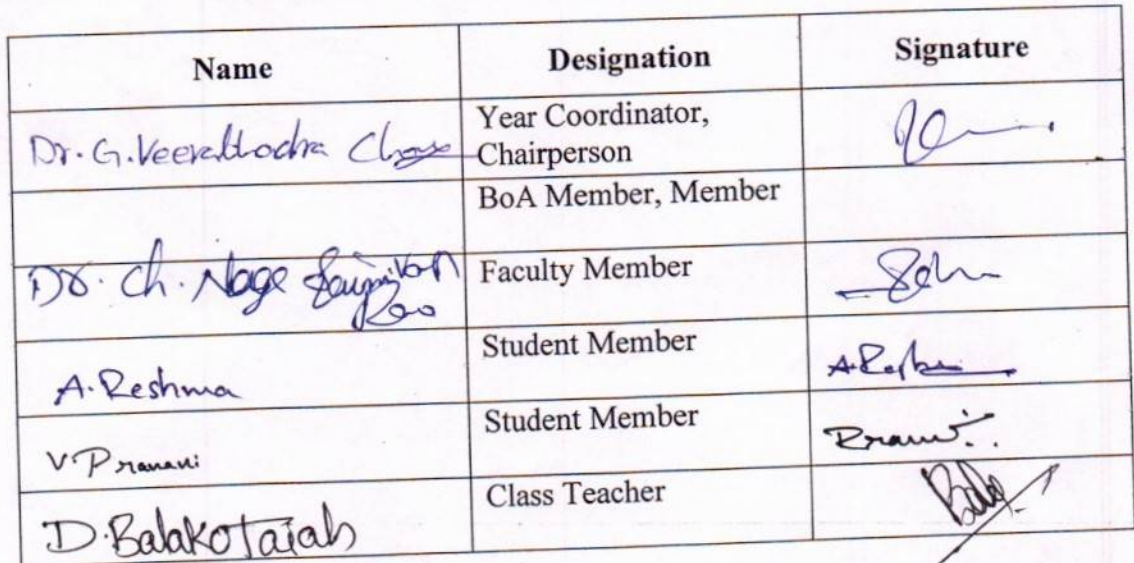 Name Designation Signature
Dr. G. Veerabhadra Year Coordinator,
Chairperson
BoA Member, Member
Dr. Ch. Naga Faculty Member
Rao
A. Reshma Student Member
V. Pranavi Student Member
D. Balakotaiah Class Teacher Bala